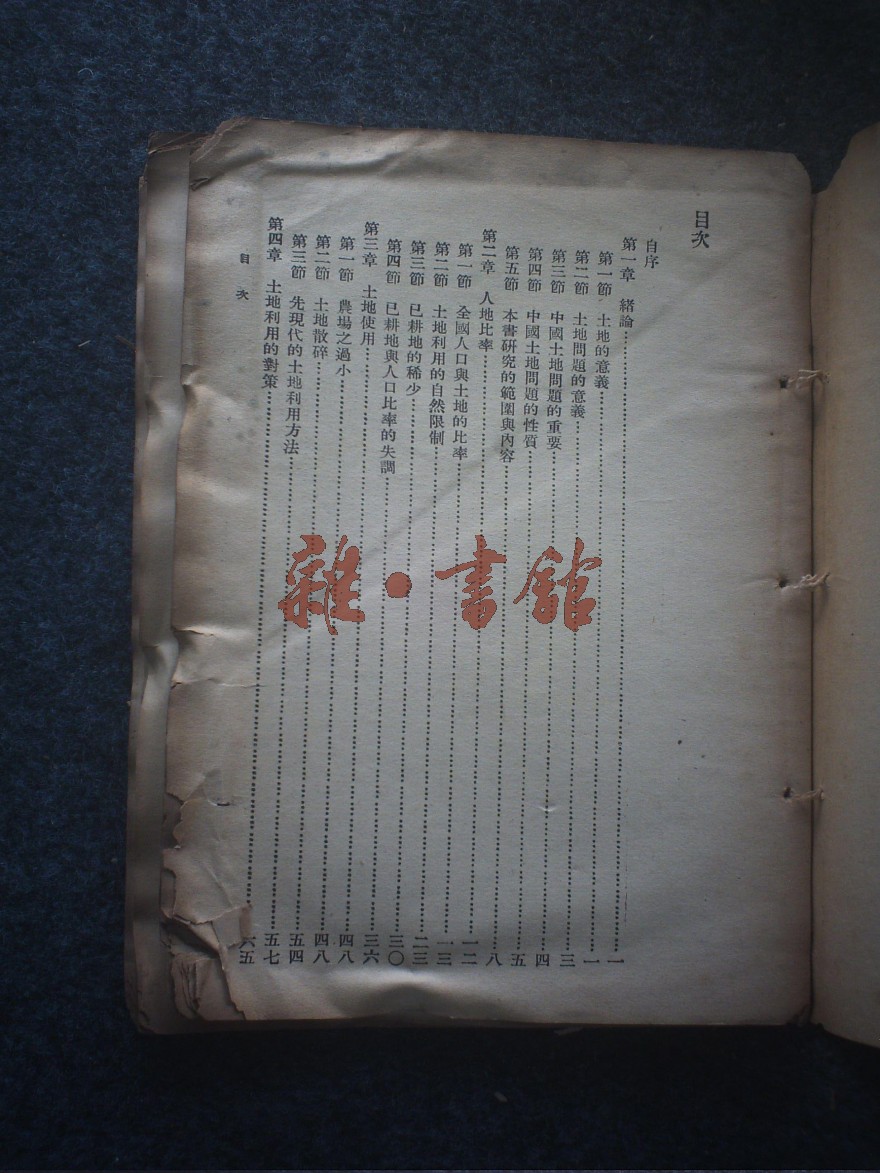 目次
自序
第一章 緒論……一
第一節 土地的意義……一
第二節 土地問題的意義……三
第三節 中國土地問題的重要……四
第四節 中國土地問題的性質……五
第五節 本書研究的範圍與內容……八
第二章 人地比率……一二
第一節 全國人口與土地的比率……一三
第二節 土地利用的自然限制……二三
第三節 已耕地的稀少……三〇
第四節 已耕地與人口比率的失調……三六
第三章 土地使用……四八
第一節 農場之過小……四八
第二節 土地散碎……五四
第三節 先現代的土地利用方法……五七
第四章 土地利用的對策……六五
目次
雜·書館